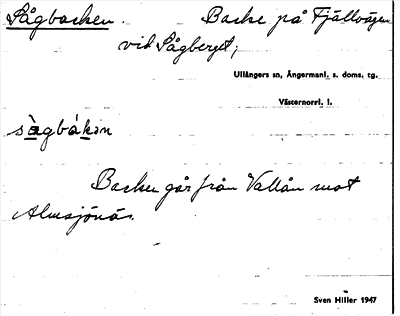 Sågbacken. Backe på Fjällvägen
vid Sågberget,
Ullångers sn, Ångermanl. s. doms. tg.
Västernorrl. l.
sågbákən
Backen går från Vallån mot
Almsjönäs.
Sven Hiller 1947